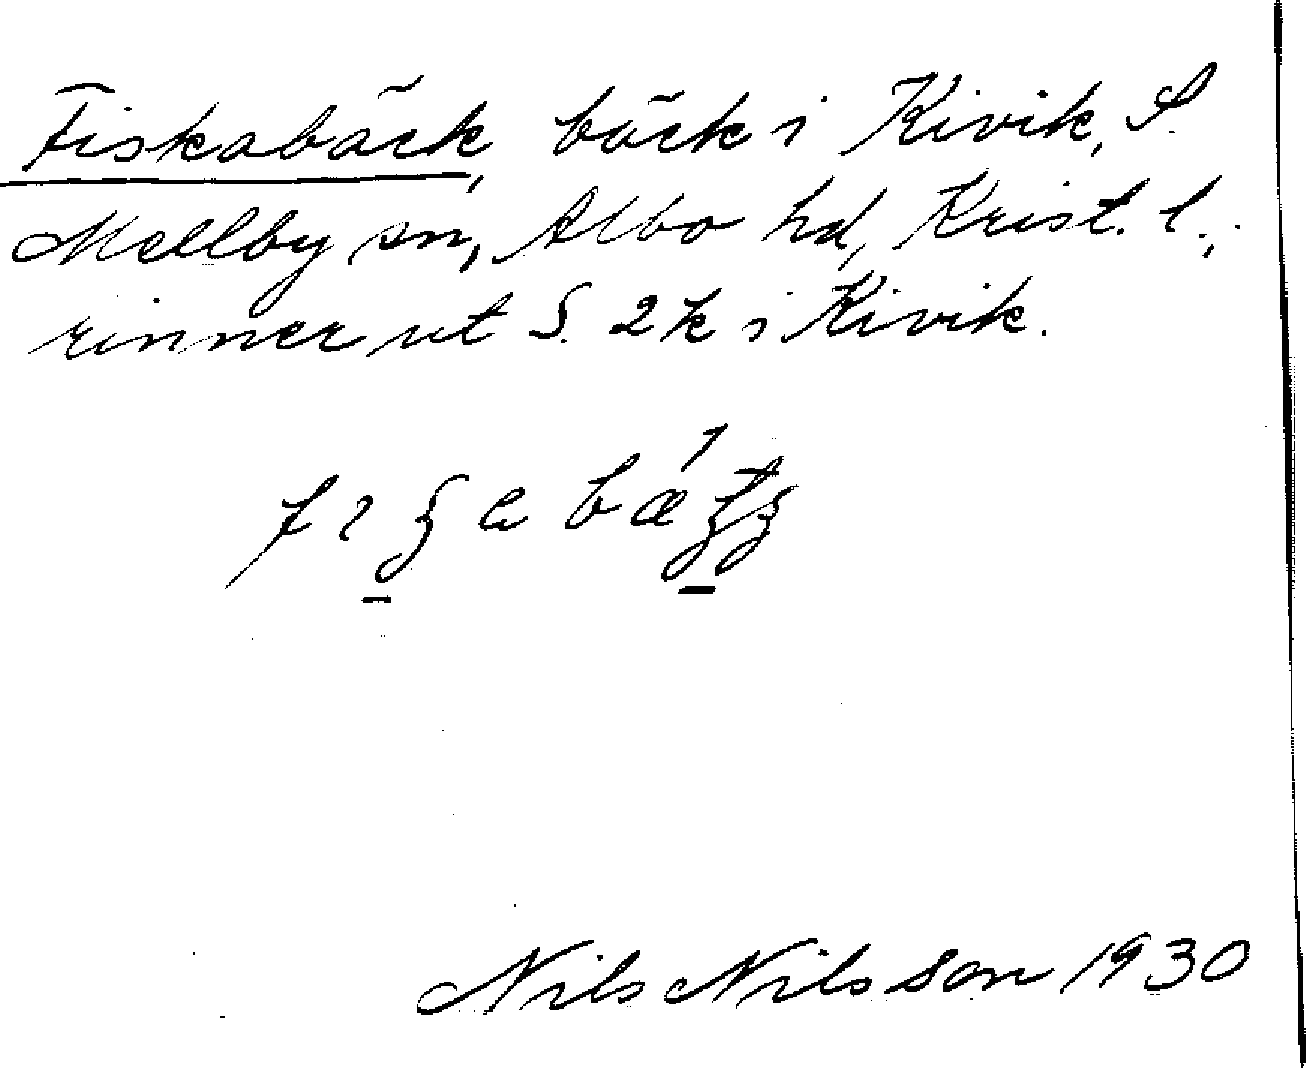 Fiskabäck, bäck i Kivik, S.
Mellby sn, Albo hd, Krist. l.,
rinner ut S. 2 k i Kivik.
Nils Nilsson 1930